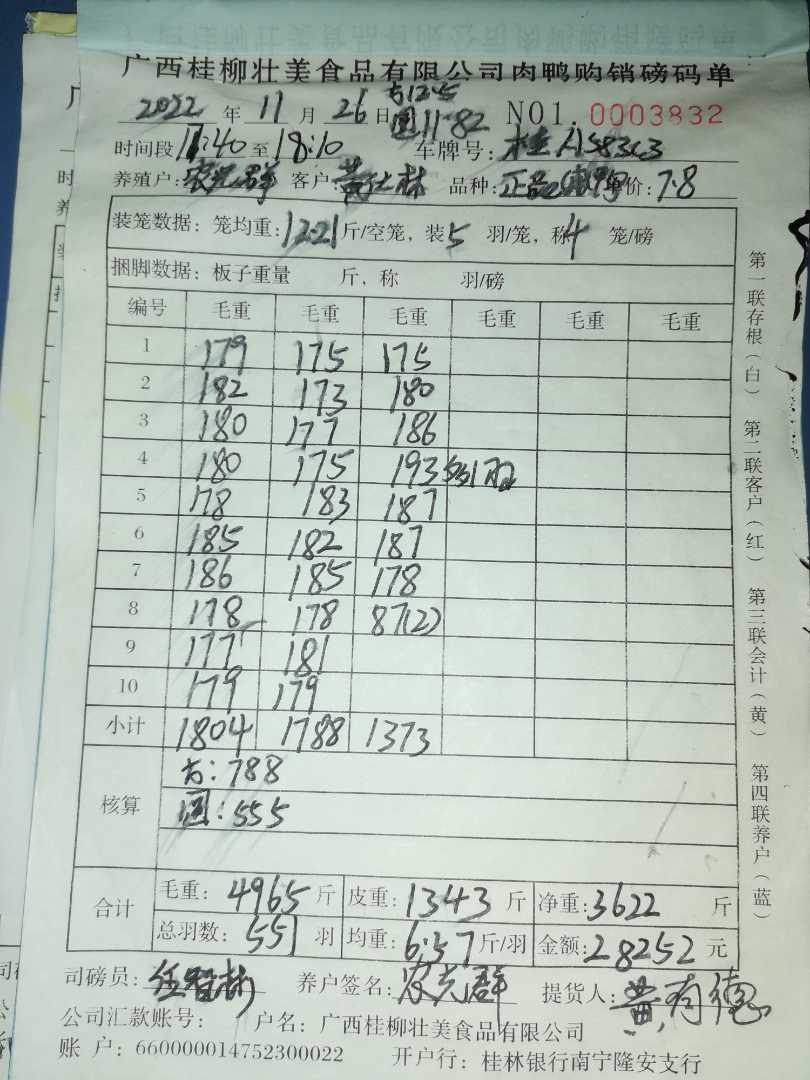 广西桂柳壮美食品有限公司肉鸭购销磅码单
2022 年 11 月 26 日 方12.5 圆11.82 NO1. 0003832
时间段 17:40 至 18:10 车牌号: 桂A583
养殖户: 农光群 客户: 黄 林 品种: 正品 单价: 7.8
装笼数据: 笼均重: 12.21 斤/空笼, 装 5 羽/笼, 称 4 笼/磅
捆脚数据: 板子重量 斤, 称 羽/磅
编号 毛重 毛重 毛重 毛重 毛重 毛重
1 179 175 175
2 182 173 180
3 180 177 186
4 180 175 193 551羽
5 178 183 187
6 185 182 187
7 186 185 178
8 178 178 87(2)
9 177 181
10 179 179
小计 1804 1788 1373
核算 方: 788
圆: 555
合计 毛重: 4965 斤 皮重: 1343 斤 净重: 3622 斤
总羽数: 551 羽 均重: 6.57 斤/羽 金额: 28252 元
司磅员: 养户签名: 农光群 提货人: 黄有德
公司汇款账号: 户名: 广西桂柳壮美食品有限公司
账 户: 660000014752300022 开户行: 桂林银行南宁隆安支行
第一联存根(白) 第二联客户(红) 第三联会计(黄) 第四联养户(蓝)